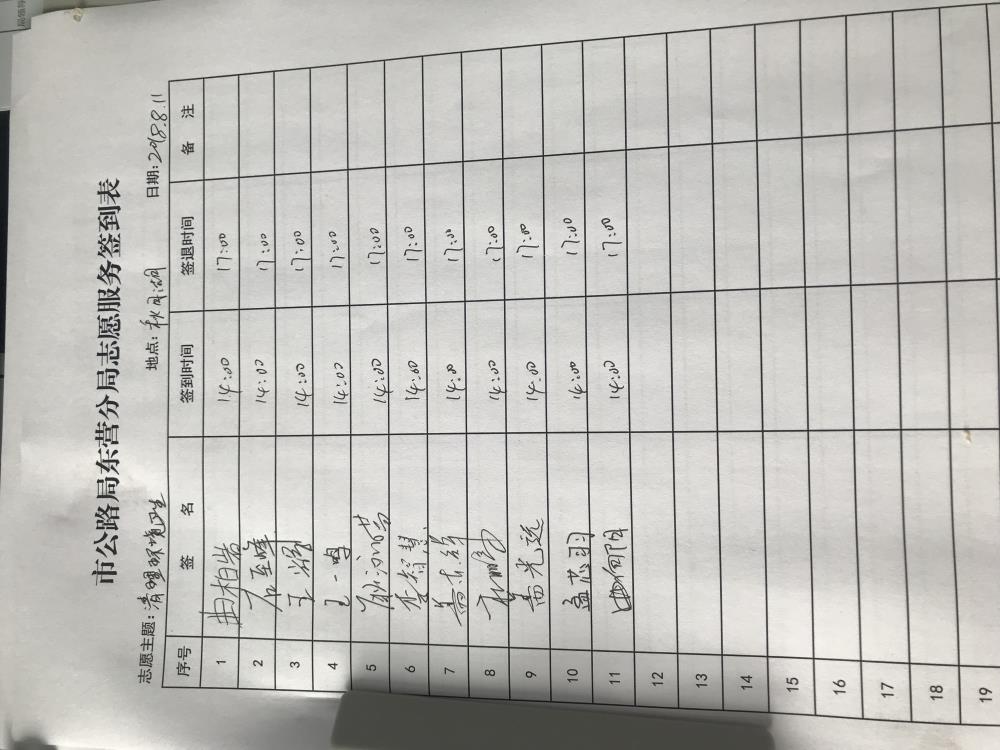 市公路局东营分局志愿服务签到表
志愿主题：清理环境卫生 地点：秋月湖 日期：2018.8.11
序号 签 名 签到时间 签退时间 备 注
1 曲柏岩 14:00 17:00
2 石至峰 14:00 17:00
3 王 14:00 17:00
4 王一鸣 14:00 17:00
5 14:00 17:00
6 李智慧 14:00 17:00
7 14:00 17:00
8 14:00 17:00
9 光远 14:00 17:00
10 孟芯羽 14:00 17:00
11 14:00 17:00
12
13
14
15
16
17
18
19